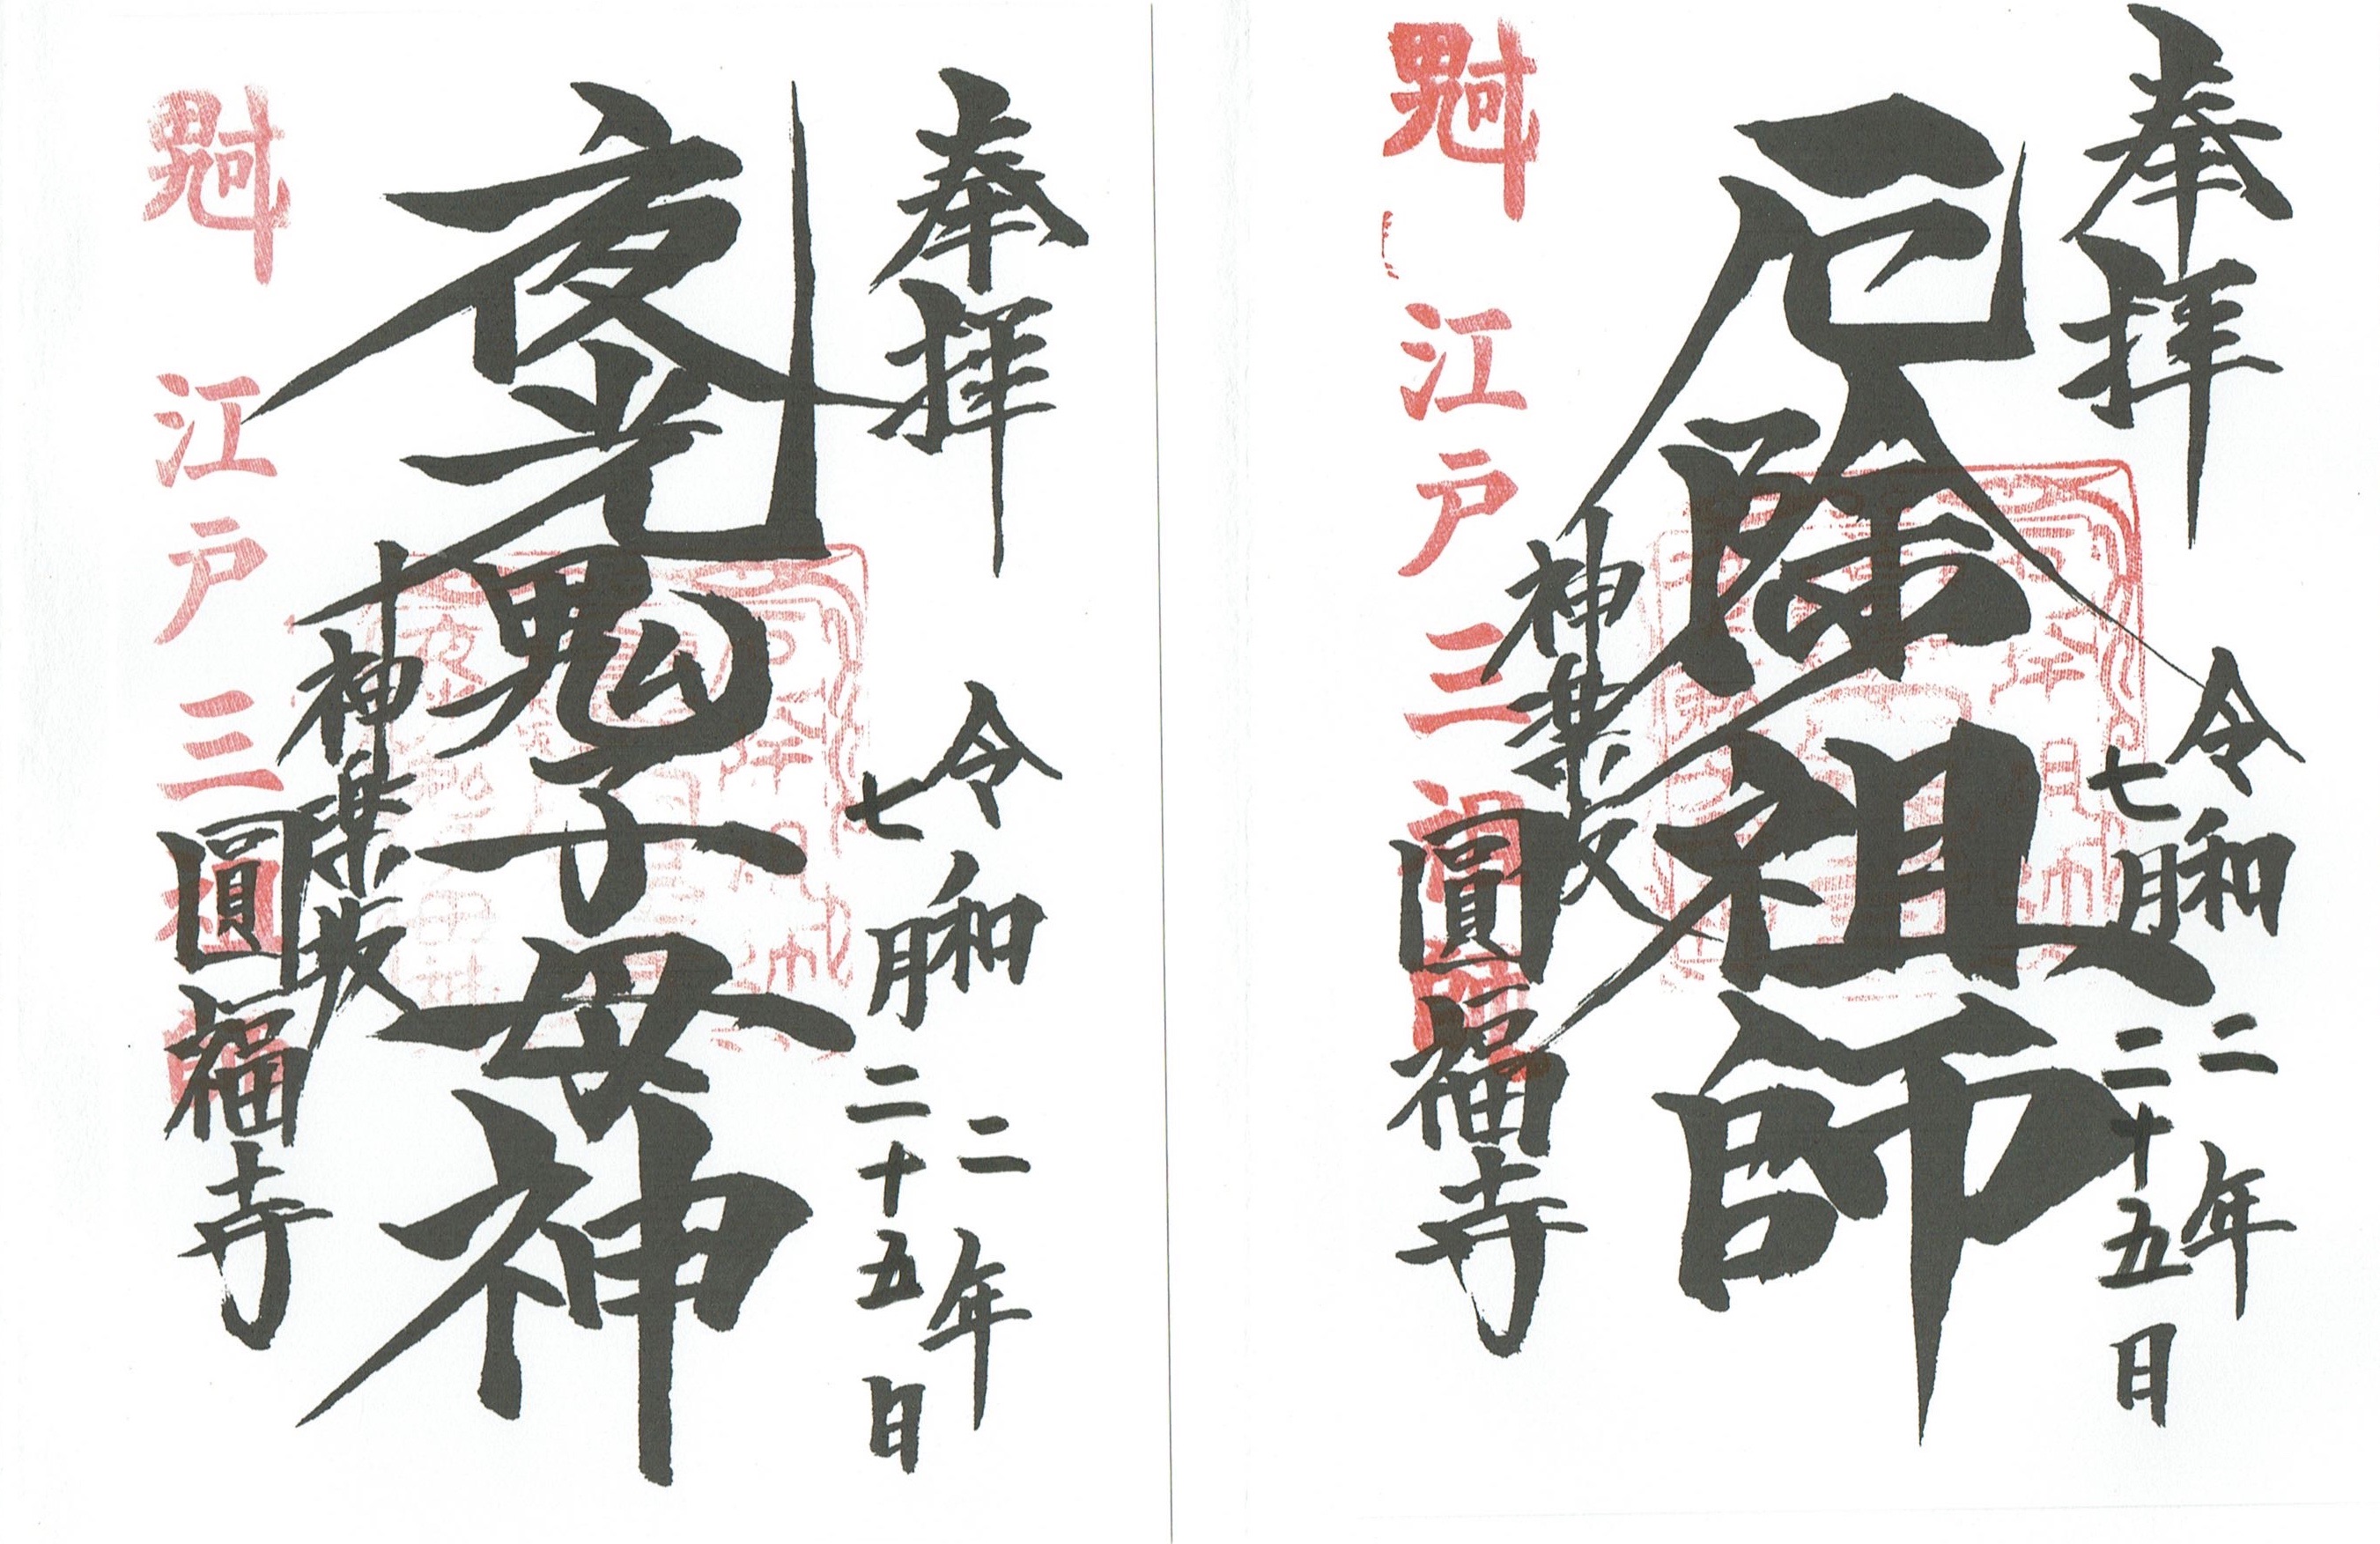 奉拝
令和二年
七月二十五日
厄除祖師
神楽坂
圓福寺
魁
江戸三祖師
奉拝
令和二年
七月二十五日
夜光鬼子母神
神楽坂
圓福寺
魁
江戸三祖師